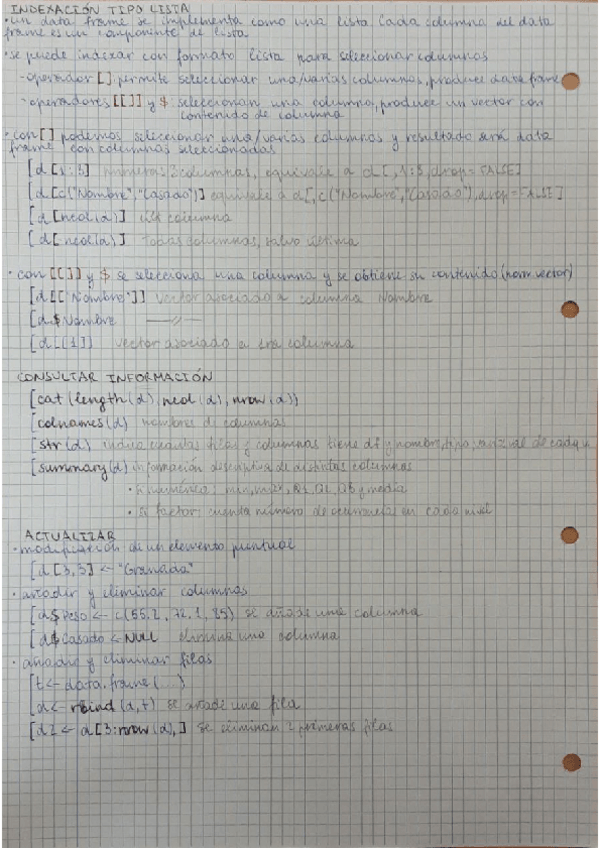 INDEXACIÓN TIPO LISTA
• un data frame se implementa como una lista. Cada columna del data
frame es un componente de lista
• se puede indexar con formato lista para seleccionar columnas
- operador [] permite seleccionar una/varias columnas, produce data frame
- operadores [[]] y $ seleccionan una columna, produce un vector con
contenido de columna
• con [] podemos seleccionar una/varias columnas y resultado será data
frame con columnas seleccionadas
[d[1:3] primeras 3 columnas, equivale a d[,1:3,drop=FALSE]
[d[c("Nombre","Casado")] equivale a d[,c("Nombre","Casado"),drop=FALSE]
[d[ncol(d)] columna
[d[ncol(d)] Todas columnas, salvo última
• con [[]] y $ se selecciona una columna y se obtiene su contenido (norm vector)
[d[["Nombre"]] vector asociado a columna Nombre
[d$Nombre —//—
[d[[1]] vector asociado a 1ra columna
CONSULTAR INFORMACIÓN
[cat(length(d), ncol(d), nrow(d))
[colnames(d) nombres de columnas
[str(d) indica cuantas filas y columnas tiene df y nombre, tipo, de cada
[summary(d) información descriptiva de distintas columnas
• Si numérica: min, max, Q1, Q2, Q3 y media
• Si factor: cuenta número de ocurrencias en cada nivel
ACTUALIZAR
• modificación de un elemento puntual
[d[3,3] <- "Granada"
• añadir y eliminar columnas
[d$Peso <- c(55.2, 72.1, 85) se añade una columna
[d$Casado <- NULL elimina una columna
• añadir y eliminar filas
[t <- data.frame(...)
[d <- rbind(d,t) se añade una fila
[d2 <- d[3:nrow(d),] se eliminan 2 primeras filas